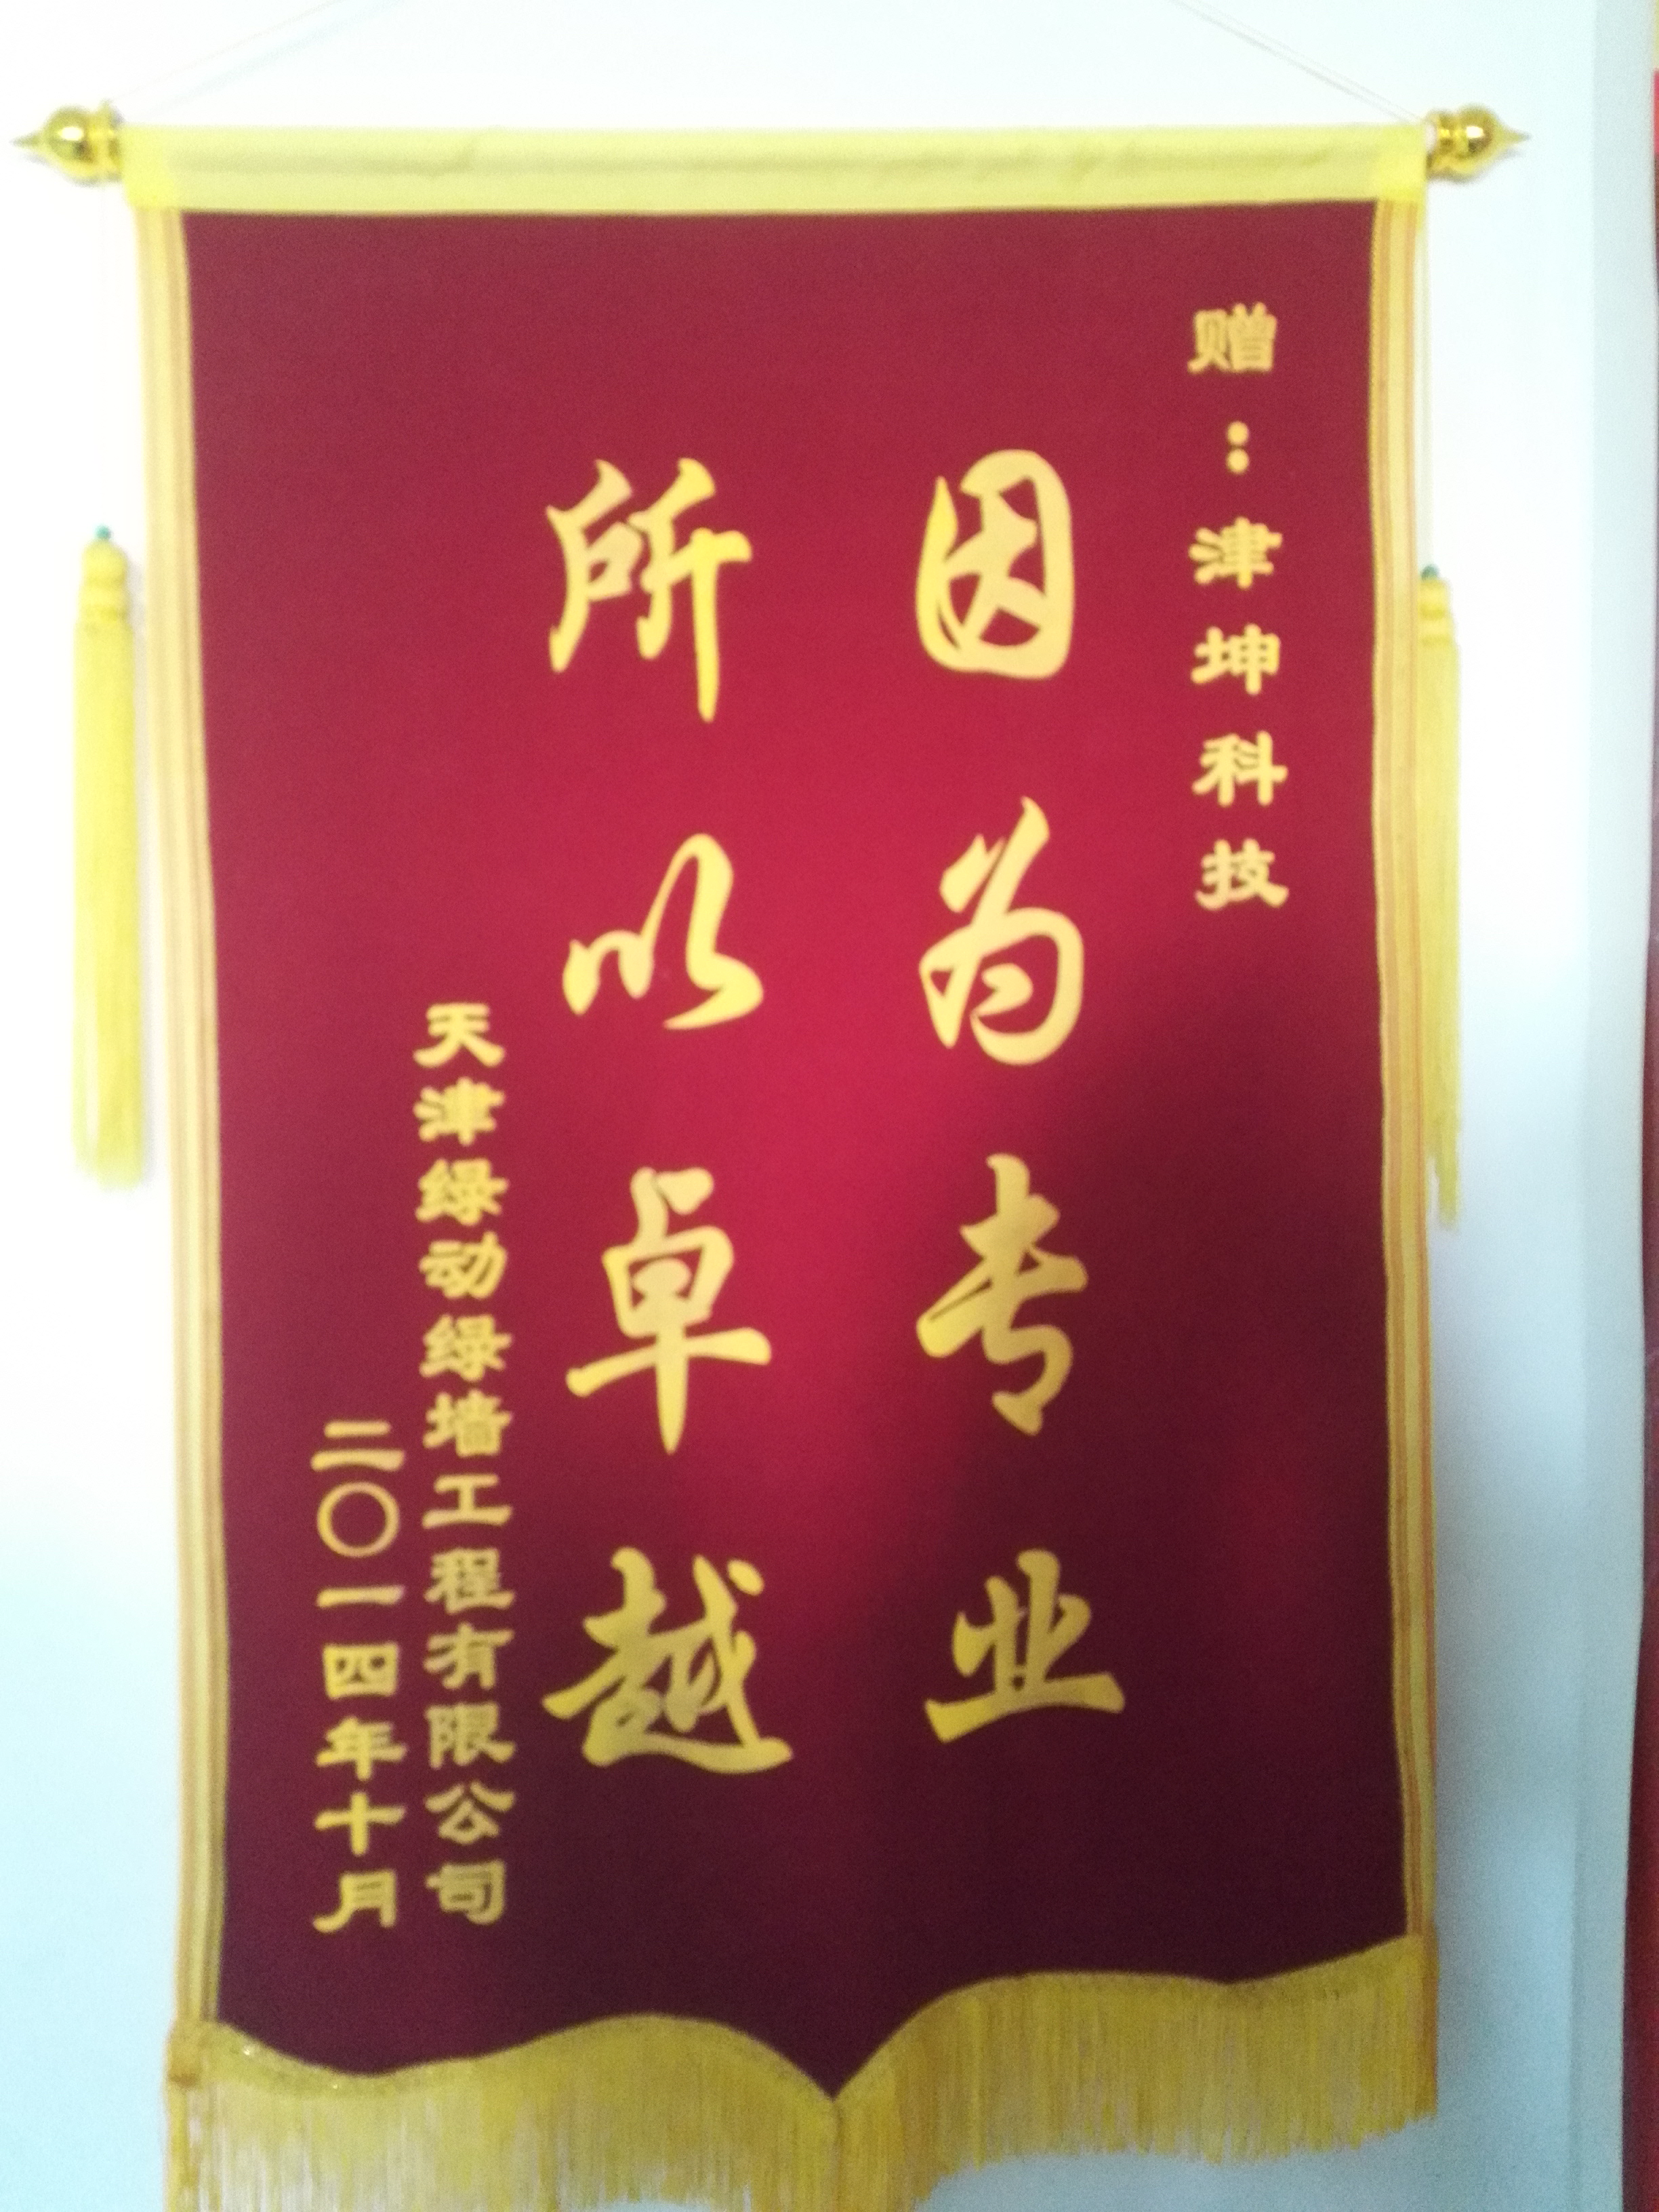 赠：津坤科技
因为专业
所以卓越
天津绿动绿墙工程有限公司
二〇一四年十月